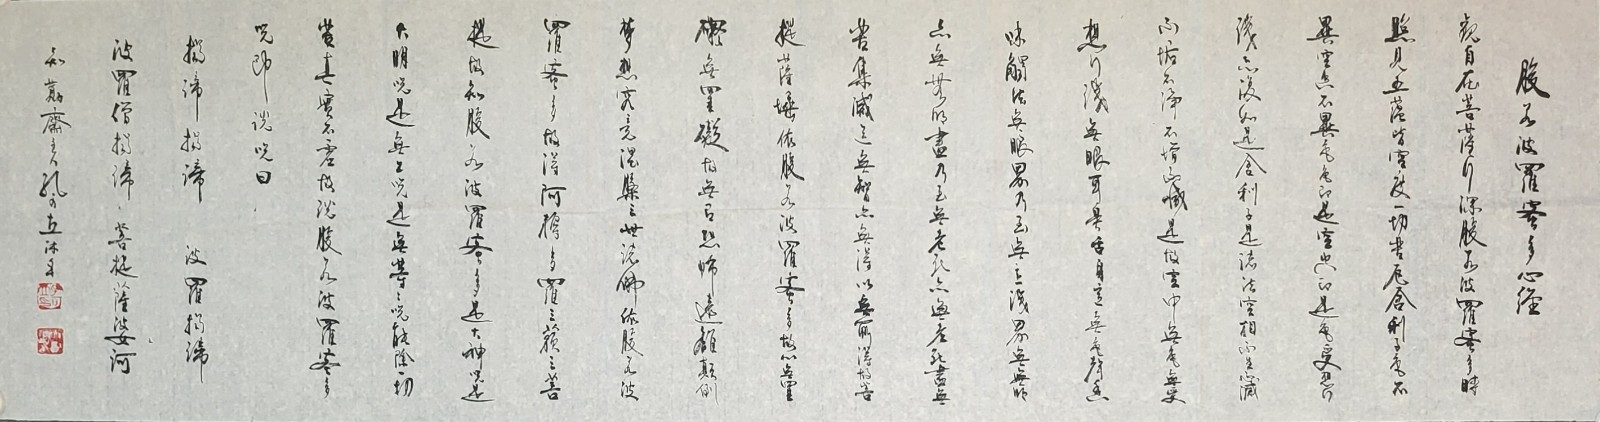 般若波羅蜜多心經
觀自在菩薩行深般若波羅蜜多時
照見五蘊皆空度一切苦厄舍利子色不
異空空不異色色即是空空即是色受想行
識亦復如是舍利子是諸法空相不生不滅
不垢不淨不增不減是故空中無色無受
想行識無眼耳鼻舌身意無色聲香
味觸法無眼界乃至無意識界無無明
亦無無明盡乃至無老死亦無老死盡無
苦集滅道無智亦無得以無所得故菩
提薩埵依般若波羅蜜多故心無罣
礙無罣礙故無有恐怖遠離顛倒
夢想究竟涅槃三世諸佛依般若波
羅蜜多故得阿耨多羅三藐三菩
提故知般若波羅蜜多是大神咒是
大明咒是無上咒是無等等咒能除一切
苦真實不虛故說般若波羅蜜多
咒即說咒曰
揭諦揭諦 波羅揭諦
波羅僧揭諦 菩提薩婆訶